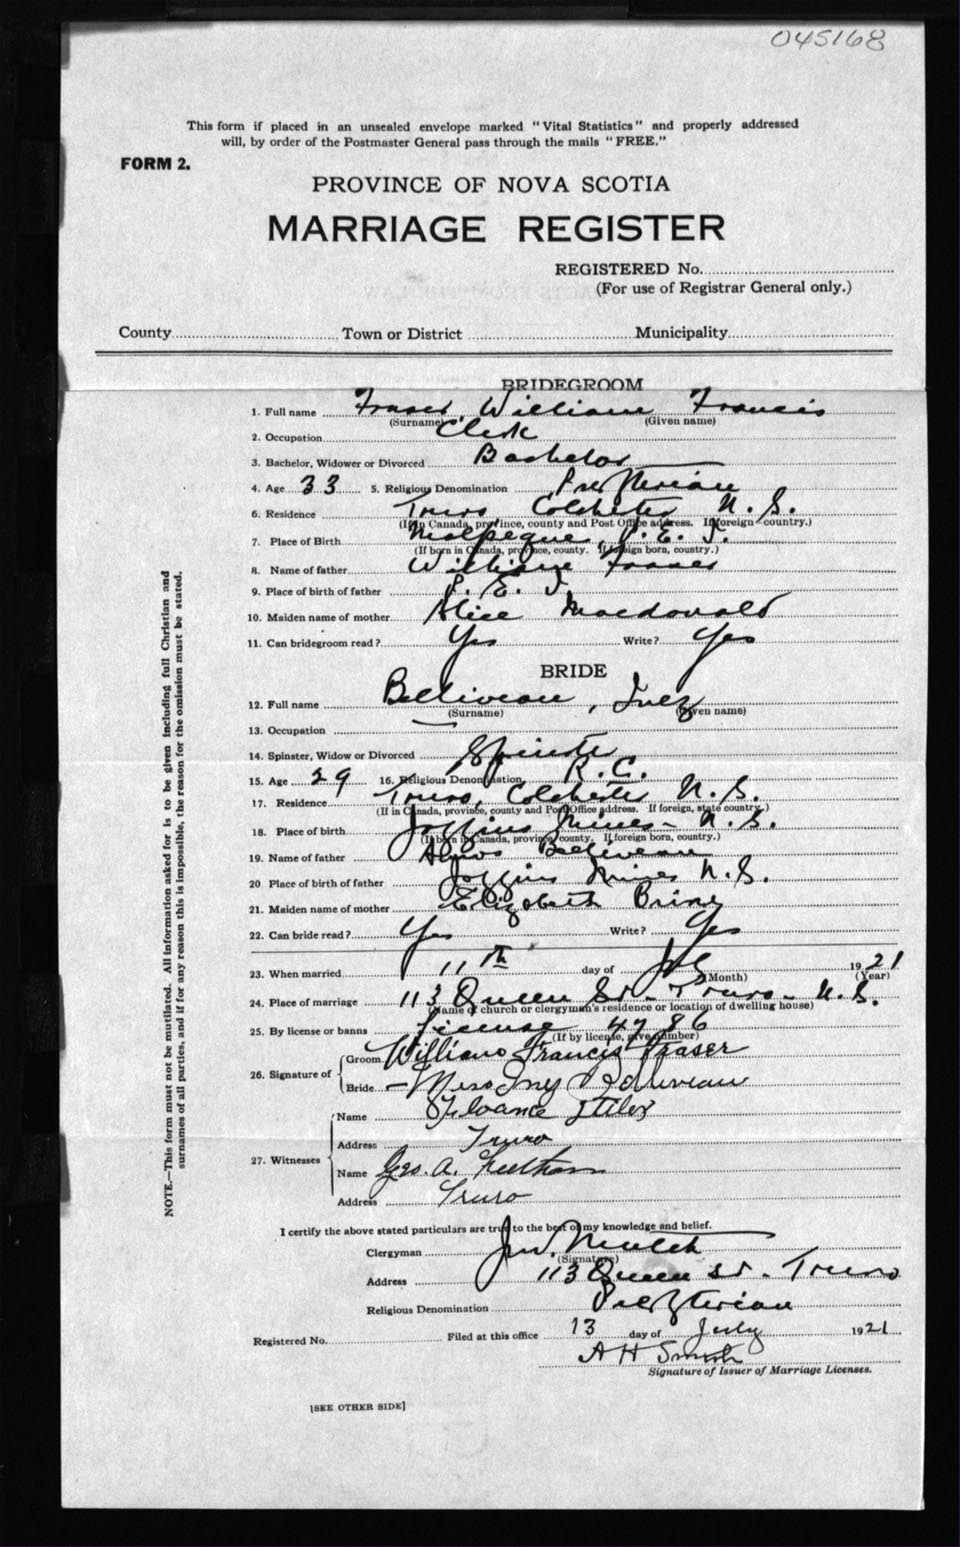 045168
This form if placed in an unsealed envelope marked "Vital Statistics" and properly addressed
will, by order of the Postmaster General pass through the mails "FREE."
FORM 2.
PROVINCE OF NOVA SCOTIA
MARRIAGE REGISTER
REGISTERED No.
(For use of Registrar General only.)
County Town or District Municipality
BRIDEGROOM
1. Full name Fraser, William Francis
(Surname) (Given name)
2. Occupation Clerk
3. Bachelor, Widower or Divorced Bachelor
4. Age 33 5. Religious Denomination Presbyterian
6. Residence Truro Colchester N.S.
(If in Canada, province, county and Post Office address. If foreign country.)
7. Place of Birth Malpeque, P.E.I.
(If born in Canada, province, county. If foreign born, country.)
8. Name of father William Fraser
9. Place of birth of father P.E.I
10. Maiden name of mother Alice Macdonald
11. Can bridegroom read? Yes Write? Yes
BRIDE
12. Full name Belliveau,
(Surname) (Given name)
13. Occupation
14. Spinster, Widow or Divorced Spinster
15. Age 29 16. Religious Denomination R.C.
17. Residence Truro, Colchester N.S.
(If in Canada, province, county and Post Office address. If foreign, state country.)
18. Place of birth Joggins Mines - N.S.
(If born in Canada, province county. If foreign born, country.)
19. Name of father Belliveau
20 Place of birth of father Joggins Mines N.S.
21. Maiden name of mother Elizabeth Brine
22. Can bride read? Yes Write? Yes
23. When married 11th day of July 1921
(Month) (Year)
24. Place of marriage 113 Queen St - Truro - N.S.
(Name of church or clergyman's residence or location of dwelling house)
25. By license or banns License 4786
(If by license, give number)
26. Signature of Groom William Francis Fraser
Bride Miss Belliveau
27. Witnesses Name
Address Truro
Name Geo. A.
Address Truro
I certify the above stated particulars are true to the best of my knowledge and belief.
Clergyman
(Signature)
Address 113 Queen St - Truro
Religious Denomination Presbyterian
Registered No. Filed at this office 13 day of July 1921
A H Smith
Signature of Issuer of Marriage Licenses.
[SEE OTHER SIDE]
NOTE.—This form must not be mutilated. All information asked for is to be given including full Christian and
surnames of all parties, and if for any reason this is impossible, the reason for the omission must be stated.